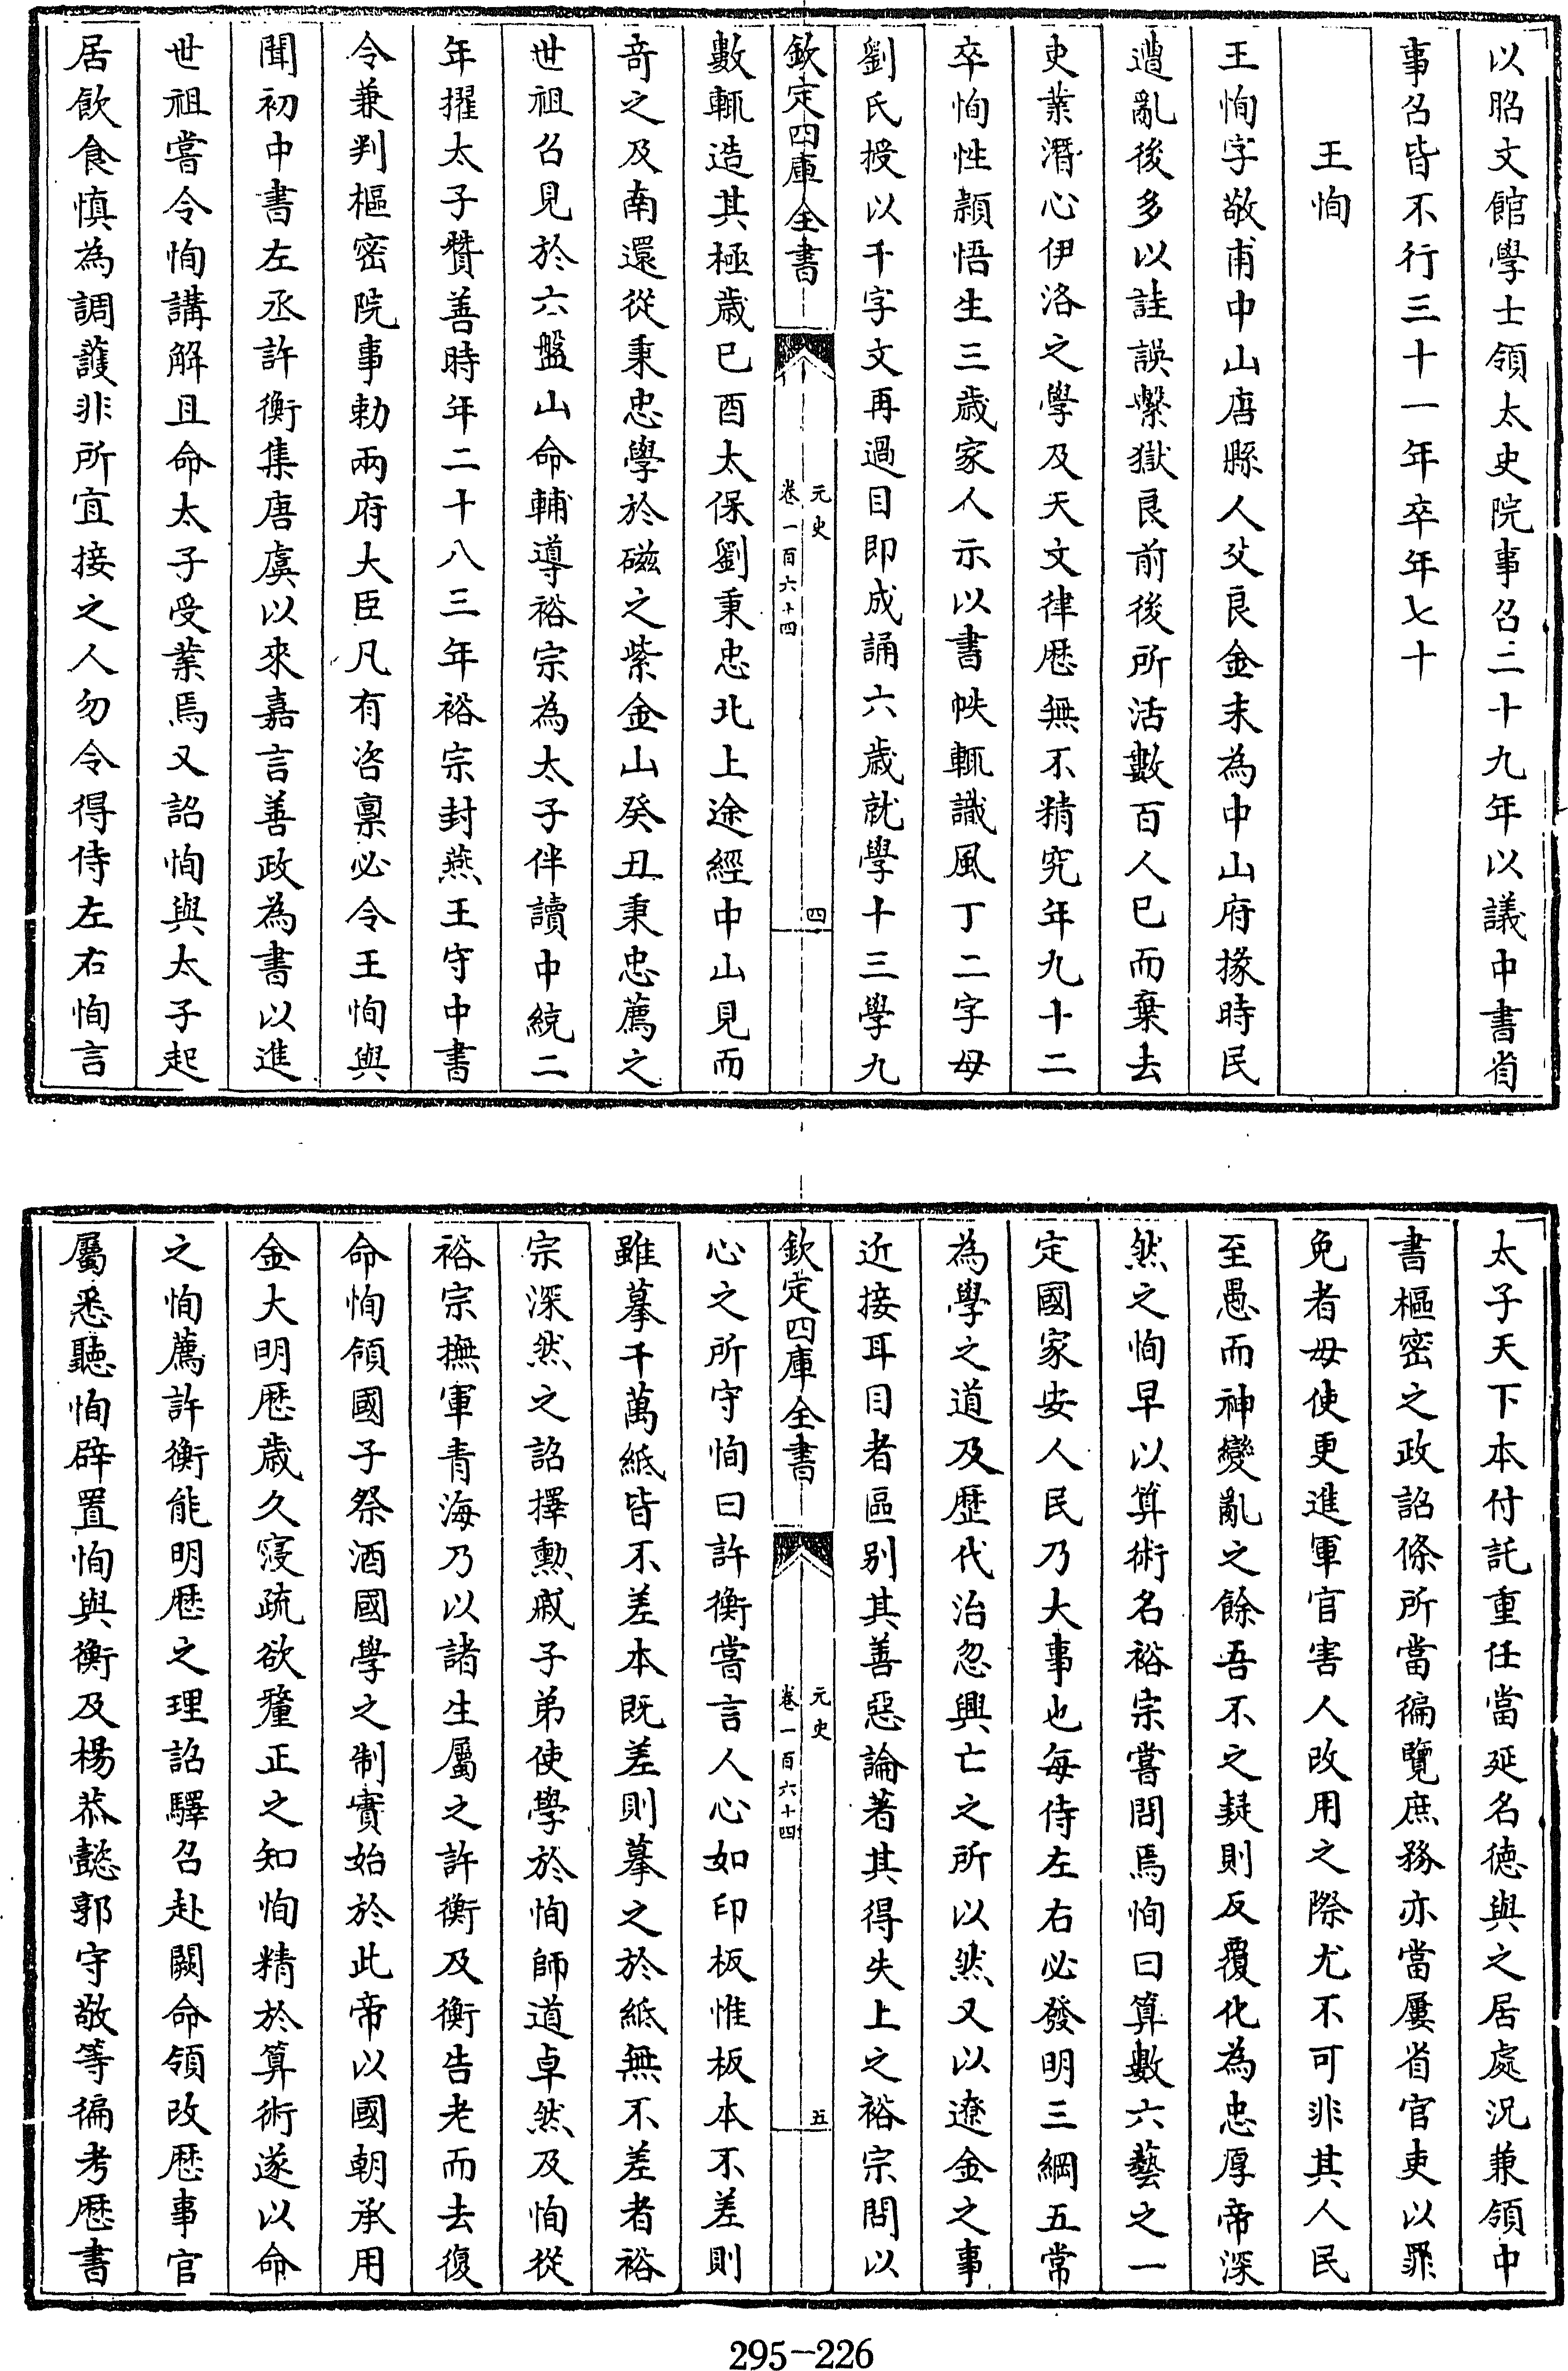 以昭文館學士領太史院事召二十九年以議中書省
事召皆不行三十一年卒年七十
王恂
王恂字敬甫中山唐縣人父良金末為中山府掾時民
遭亂後多以詿誤繫獄良前後所活數百人已而棄去
吏業潛心伊洛之學及天文律厯無不精究年九十二
卒恂性穎悟生三歲家人示以書帙輒識風丁二字母
劉氏授以千字文再過目即成誦六歲就學十三學九
欽定四庫全書
元史
卷一百六十四
四
數輒造其極歲已酉太保劉秉忠北上途經中山見而
奇之及南還從秉忠學於磁之紫金山癸丑秉忠薦之
世祖召見於六盤山命輔導裕宗為太子伴讀中統二
年擢太子贊善時年二十八三年裕宗封燕王守中書
令兼判樞密院事勅兩府大臣凡有咨稟必令王恂與
聞初中書左丞許衡集唐虞以來嘉言善政為書以進
世祖嘗令恂講解且命太子受業焉又詔恂與太子起
居飲食慎為調護非所宜接之人勿令得侍左右恂言
太子天下本付託重任當延名徳與之居處況兼領中
書樞密之政詔條所當徧覽庶務亦當屢省官吏以罪
免者毋使更進軍官害人改用之際尤不可非其人民
至愚而神變亂之餘吾不之疑則反覆化為忠厚帝深
然之恂早以算術名裕宗嘗問焉恂曰算數六藝之一
定國家安人民乃大事也每侍左右必發明三綱五常
為學之道及歴代治忽興亡之所以然又以遼金之事
近接耳目者區别其善惡論著其得失上之裕宗問以
欽定四庫全書
元史
卷一百六十四
五
心之所守恂曰許衡嘗言人心如印板惟板本不差則
雖摹千萬紙皆不差本既差則摹之於紙無不差者裕
宗深然之詔擇勲戚子弟使學於恂師道卓然及恂從
裕宗撫軍青海乃以諸生屬之許衡及衡告老而去復
命恂領國子祭酒國學之制實始於此帝以國朝承用
金大明厯歲久寖疏欲釐正之知恂精於算術遂以命
之恂薦許衡能明厯之理詔驛召赴闕命領改厯事官
屬悉聽恂辟置恂與衡及楊恭懿郭守敬等徧考厯書
295-226